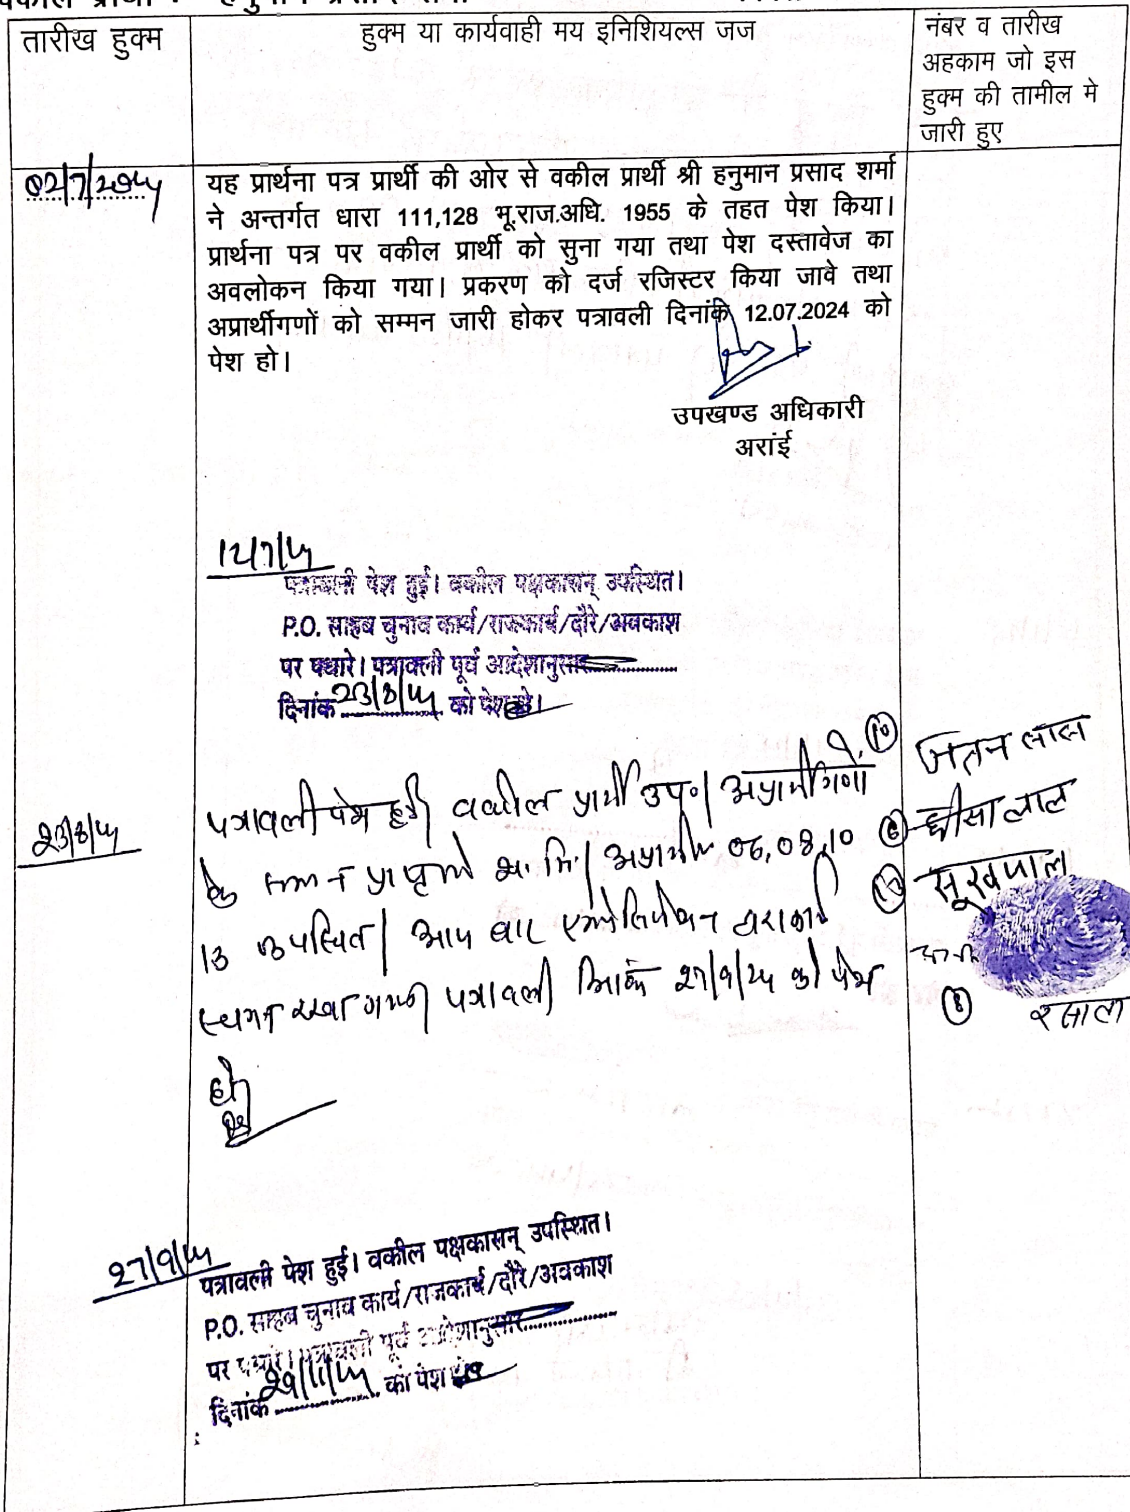 वकील प्रार्थी :- हनुमान प्रसाद शर्मा
तारीख हुक्म
हुक्म या कार्यवाही मय इनिशियल्स जज
नंबर व तारीख
अहकाम जो इस
हुक्म की तामील मे
जारी हुए
02/7/2024
यह प्रार्थना पत्र प्रार्थी की ओर से वकील प्रार्थी श्री हनुमान प्रसाद शर्मा
ने अन्तर्गत धारा 111,128 भू.राज.अधि. 1955 के तहत पेश किया।
प्रार्थना पत्र पर वकील प्रार्थी को सुना गया तथा पेश दस्तावेज का
अवलोकन किया गया। प्रकरण को दर्ज रजिस्टर किया जावे तथा
अप्रार्थीगणों को सम्मन जारी होकर पत्रावली दिनांक 12.07.2024 को
पेश हो।
उपखण्ड अधिकारी
अरांई
12/7/24
पत्रावली पेश हुई। वकील पक्षकासन् उपस्थित।
P.O. साहब चुनाव कार्य/राजकार्य/दौरे/अवकाश
पर पधारे। पत्रावली पूर्व आदेशानुसार
दिनांक 23/8/24 को पेश हो।
23/8/24
पत्रावली पेश हुई वकील प्रार्थी उप०। अप्रार्थीगणों
के प्राप्त अप्रार्थी 06,08,10
13 उपस्थित। आप बार
स्थगन रखा गया पत्रावली दिनांक 27/9/24 को पेश
हो
जतन लाल
घीसा लाल
सूखपाल
8
रसाल
27/9/24
पत्रावली पेश हुई। वकील पक्षकासन् उपस्थित।
P.O. साहब चुनाव कार्य/राजकार्य/दौरे/अवकाश
पर पधारे। पत्रावली पूर्व आदेशानुसार
दिनांक 29/11/24 को पेश हो